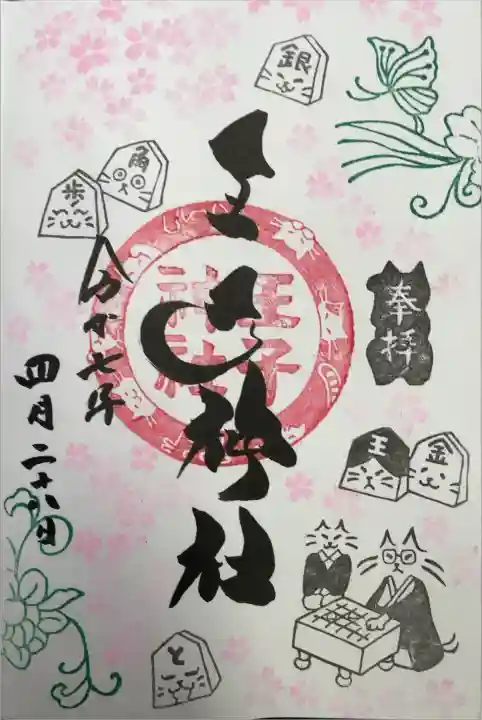 奉拝
王子神社
王子
神社
令和七年
四月二十八日
銀
角
歩
王
金
と